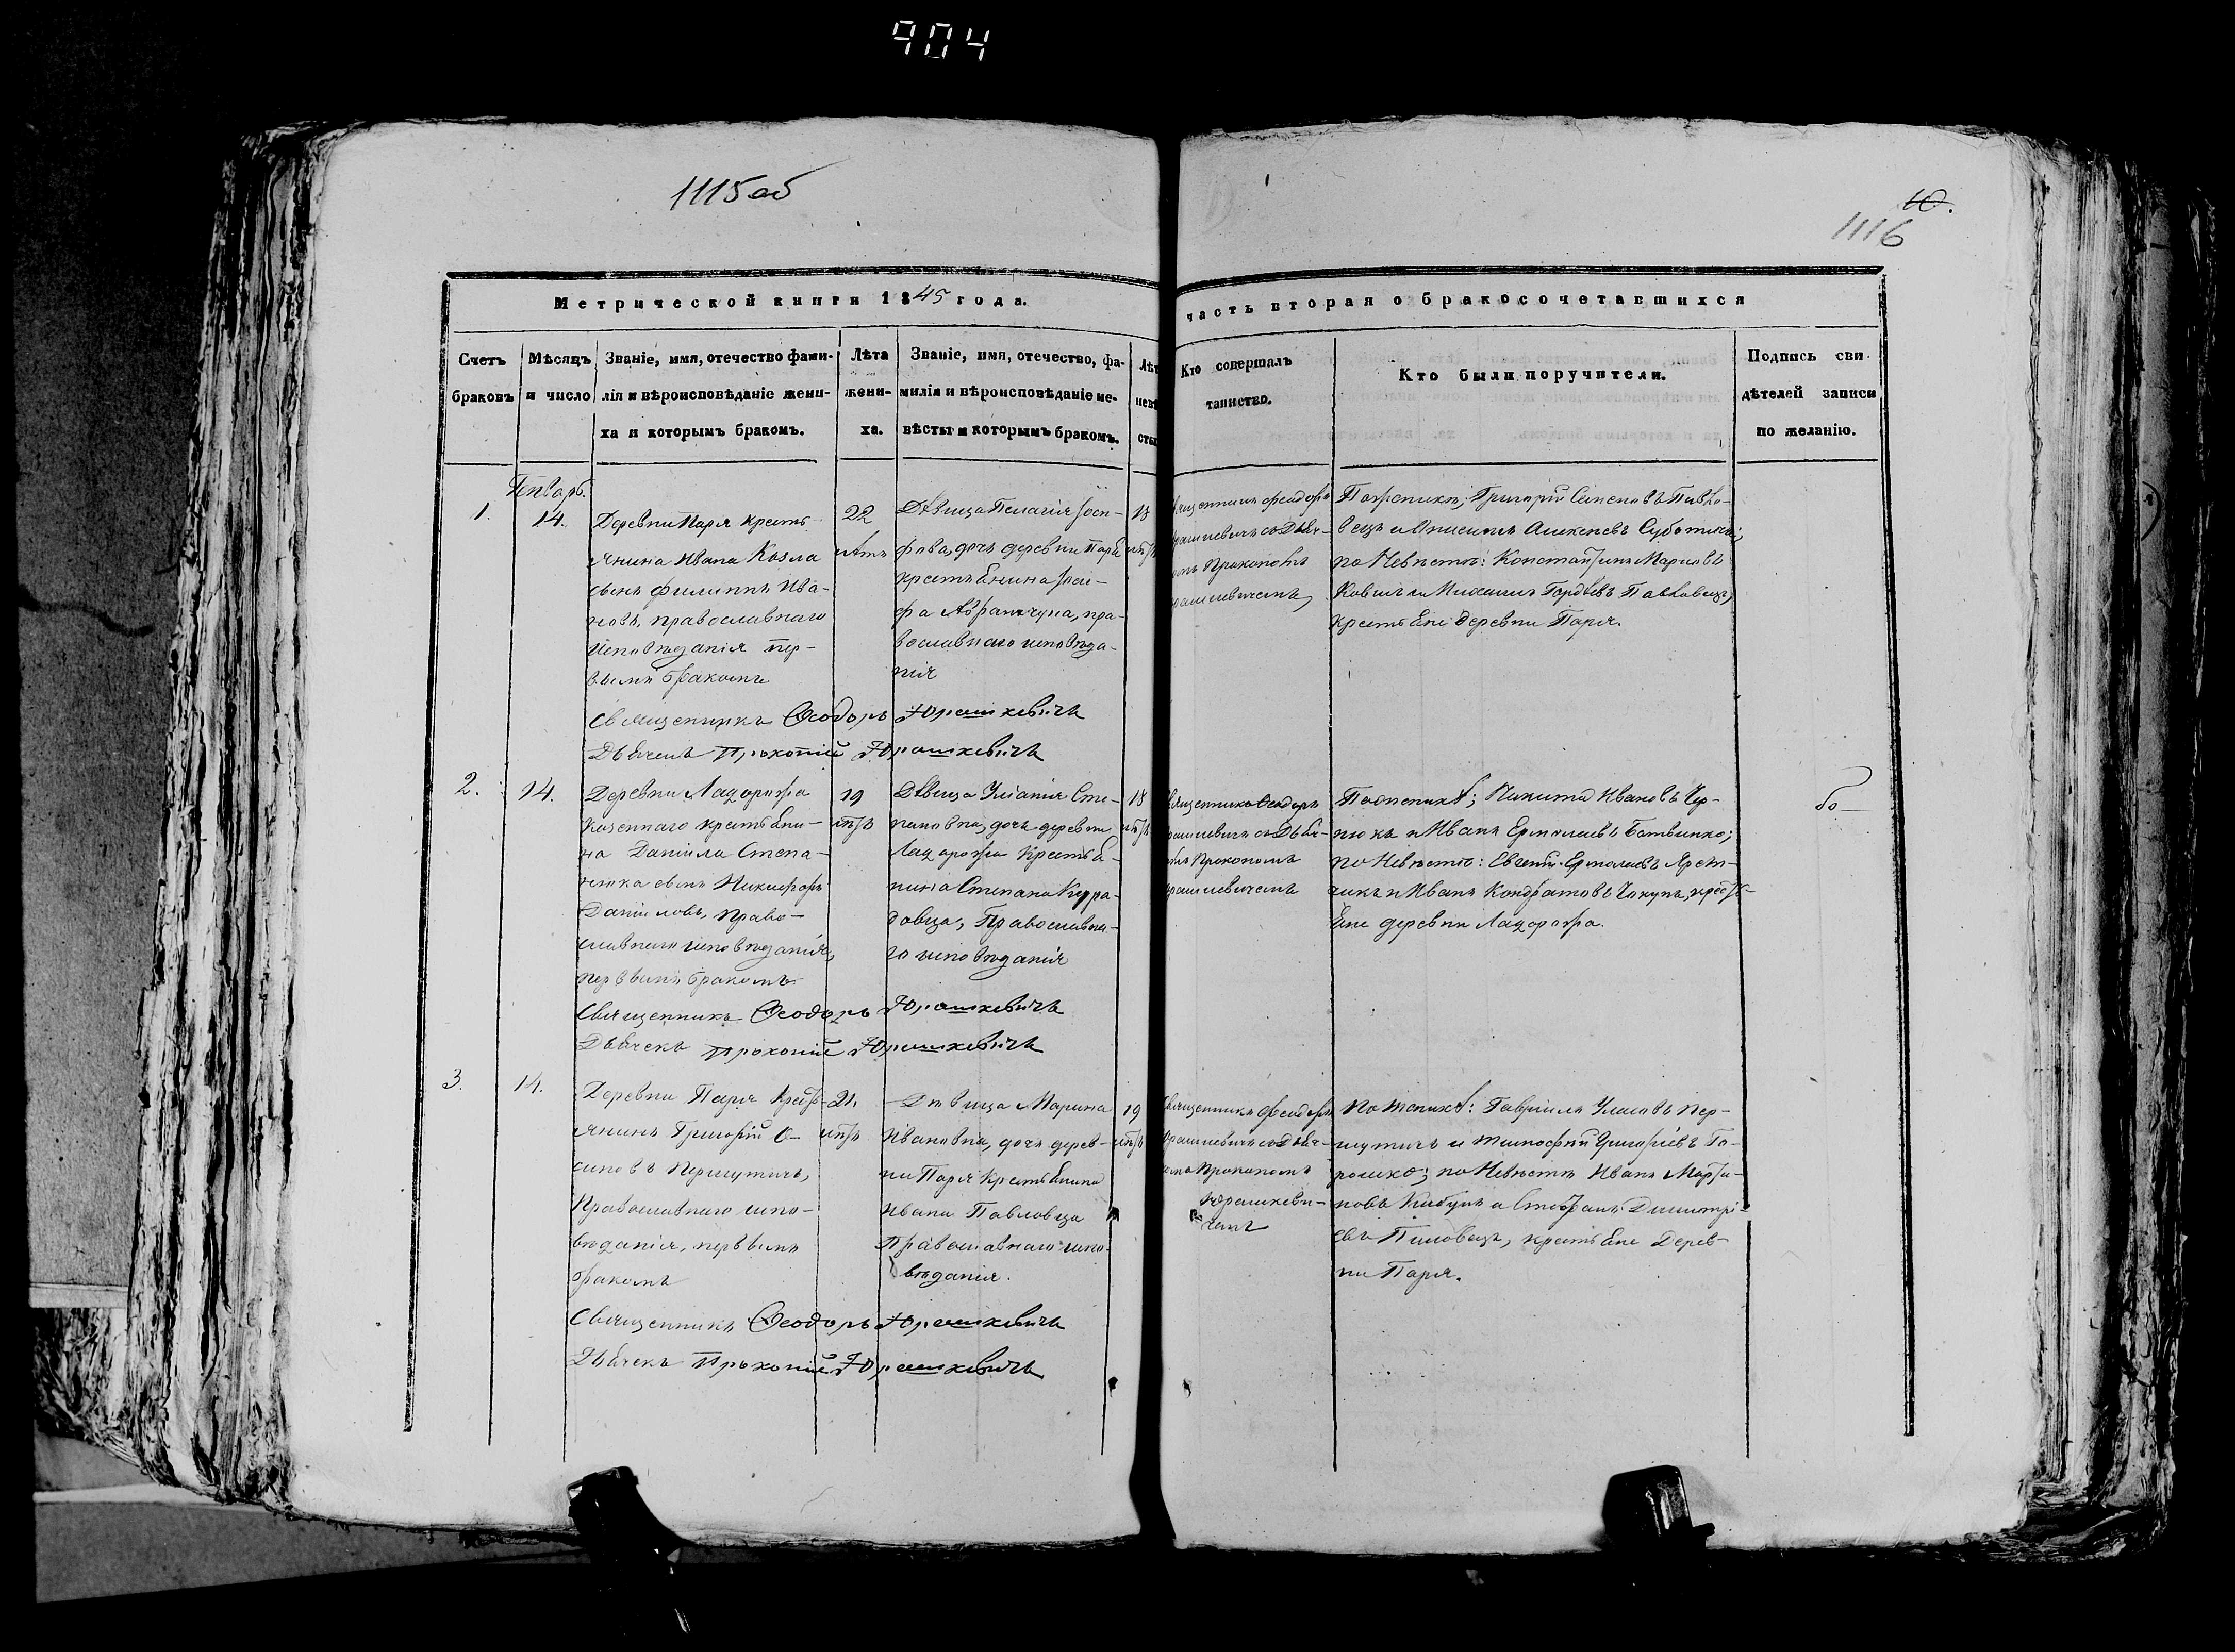 904
1115 об
10.
1116
Метрической книги 1845 года.
часть вторая о бракосочетавшихся
Счетъ браковъ
Мѣсяцъ и число
Званіе, имя, отечество фами-
лія и вѣроисповѣданіе жени-
ха и которымъ бракомъ.
Лѣта
жени-
ха.
Званіе, имя, отечество, фа-
милія и вѣроисповѣданіе не-
вѣсты и которымъ бракомъ.
Лѣт
невѣ
сты
Кто совершалъ
таинство.
Кто были поручители.
Подпись сви-
дѣтелей записи
по желанію.
Генварь.
1.
14.
Деревни Паря кресть-
янина Ивана Козла
сынъ Филиппъ Ива-
новъ, православнаго
исповѣданія пер-
вымъ бракомъ
22
лѣтъ
Дѣвица Пелагія Іоси-
фова, дочь деревни Паря
крестьянина Іоси-
фа Абрамчука, пра-
вославнаго исповѣда-
нія
18
лѣтъ
Священникъ Феодоръ
Юрашкевичъ съ Дьяч-
комъ Прокопомъ
Юрашкевичемъ
По женихѣ; Григорій Семеновъ Павло-
вецъ и Алексѣевъ
по Невѣстѣ: Константинъ Марковъ
и Михаилъ Гордѣевъ Павловецъ,
крестьяне деревни Паря.
Священникъ Ѳеодоръ Юрашкевичъ
Дьячекъ Прокопій Юрашкевичъ
2.
14.
Деревни Ладорожа
казеннаго крестьяни-
на Даніила Степа-
нюка сынъ Никифоръ
Даніиловъ, право-
славнаго исповѣданія,
первымъ бракомъ
19
лѣтъ
Дѣвица Уліанія Сте-
пановна, дочь деревни
Ладорожа крестья-
нина Степана
Православна-
го исповѣданія
18
лѣтъ
Священникъ Ѳеодоръ
Юрашкевичъ съ Дьяч-
комъ Прокопомъ
Юрашкевичемъ
По женихѣ; Никита Ивановъ Чер-
нюкъ и Иванъ Ермолаевъ Ботвинко;
по Невѣстѣ: Евгеній Ермолаевъ
и Иванъ Кондратовъ крестья-
яне деревни Ладорожа.
Священникъ Ѳеодоръ Юрашкевичъ
Дьячекъ Прокопій Юрашкевичъ
3.
14.
Деревни Паря крест-
янинъ Григорій О-
сиповъ
Православнаго испо-
вѣданія, первымъ
бракомъ
21.
лѣтъ
Дѣвица Марина
Ивановна, дочь дерев-
ни Паря крестьянина
Ивана Павловца
Православнаго испо-
вѣданія.
19
лѣтъ
Священникъ Феодоръ
Юрашкевичъ съ Дьяч-
комъ Прокопомъ
Юрашкеви-
чемъ
По женихѣ: Гавріилъ Уласовъ
и Тимофей Григорьевъ Го-
рошко; по Невѣстѣ Иванъ Марти-
новъ и Стефанъ Димитрі-
евъ крестьяне Дерев-
ни Паря.
Священникъ Ѳеодоръ Юрашкевичъ
Дьячекъ Прокопій Юрашкевичъ